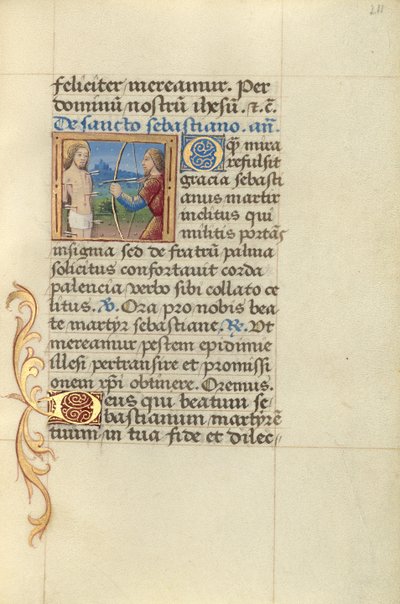 211
feliciter mereamur. Per
dominū nostrū ihesū. ⁊ c̄.
De sancto sebastiano. añ.
O q̄ mira
refulsit
gracia sebasti
anus martir
inclitus qui
militis portās
insignia sed de fratrū palma
solicitus confortauit corda
palencia verbo sibi collato ce
litus. ℣. Ora pro nobis bea
te martyr sebastiane. ℟. Vt
mereamur pestem epidimie
illesi pertransire et promissi
onem xp̄i obtinere. Oremus.
Deus qui beatum se
bastianum martyrē
tuum in tua fide et dilec